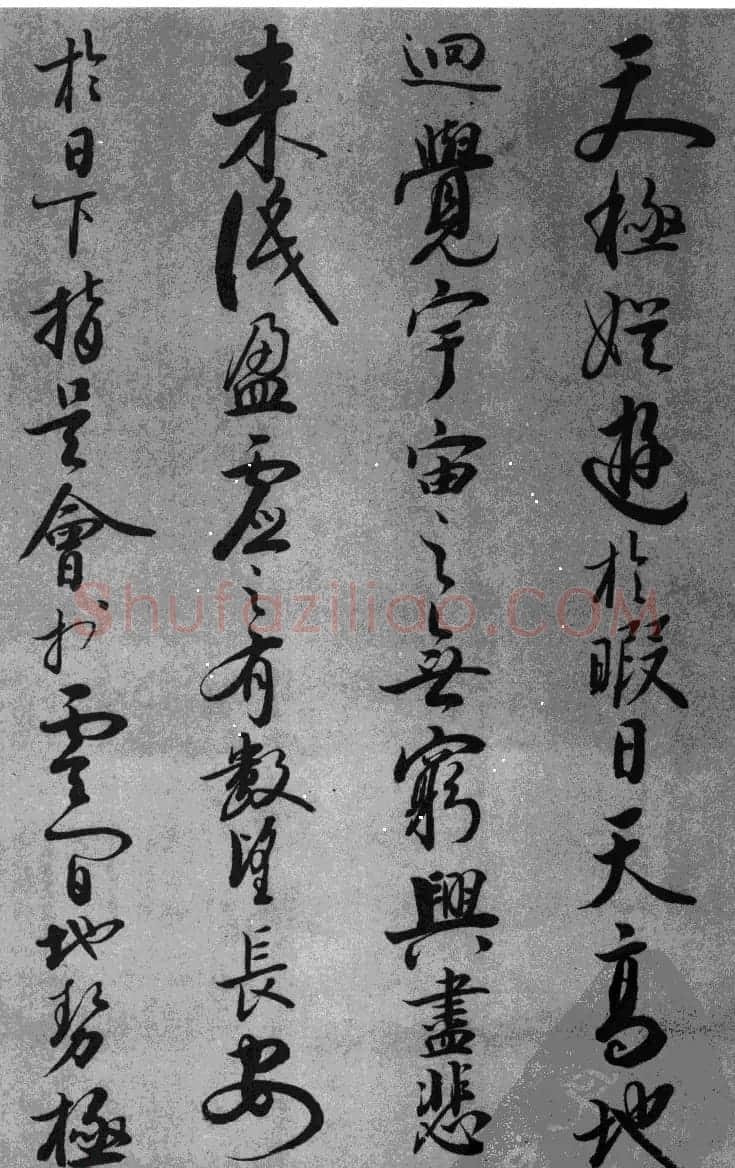 天極娯遊於暇日天高地
迥覺宇宙之無窮興盡悲
来識盈虚之有數望長安
於日下指吴會於雲間地勢極
Shufaziliao.COM